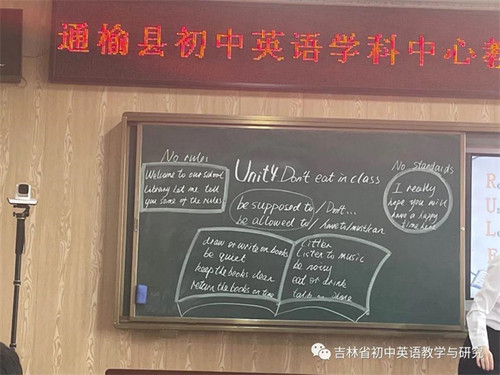 通榆县初中英语学科中心教
No rules
Welcome to our school
library. Let me tell
you some of the rules
Unit4 Don't eat in class
be supposed to / Don't...
be allowed to / have to/must/can
No standards
I really
hope you will
have a happy
time here
draw or write on books
be quiet
keep the books clean
return the books on time
litter
listen to music
be noisy
eat or drink
R
U
L
E
吉林省初中英语教学与研究